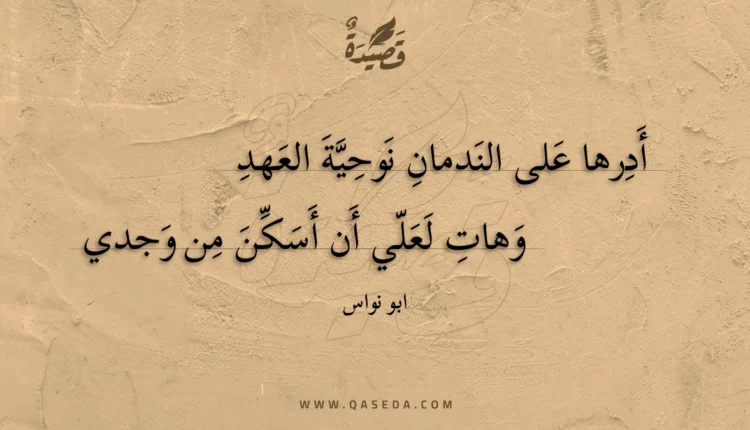 قَصِيْدَةٌ
أَدِرها عَلى النَدمانِ نَوحِيَّةَ العَهدِ
وَهاتِ لَعَلّي أَن أَسَكِّنَ مِن وَجدي
ابو نواس
WWW.QASEDA.COM